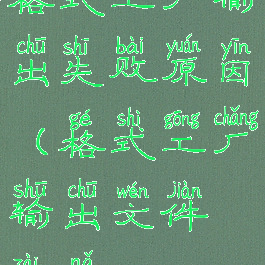 chū shī bài yuán yīn
出失败原因
gé shì gōng chǎng
（格式工厂
shū chū wén jiàn
输出文件
zài nǎ